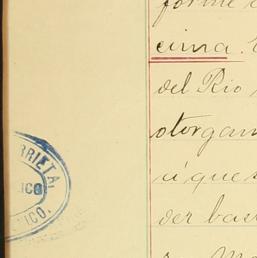 forme
cima.
del Rio
otorgam
á que s
der bas
RRIETA,
ICO
ICO.